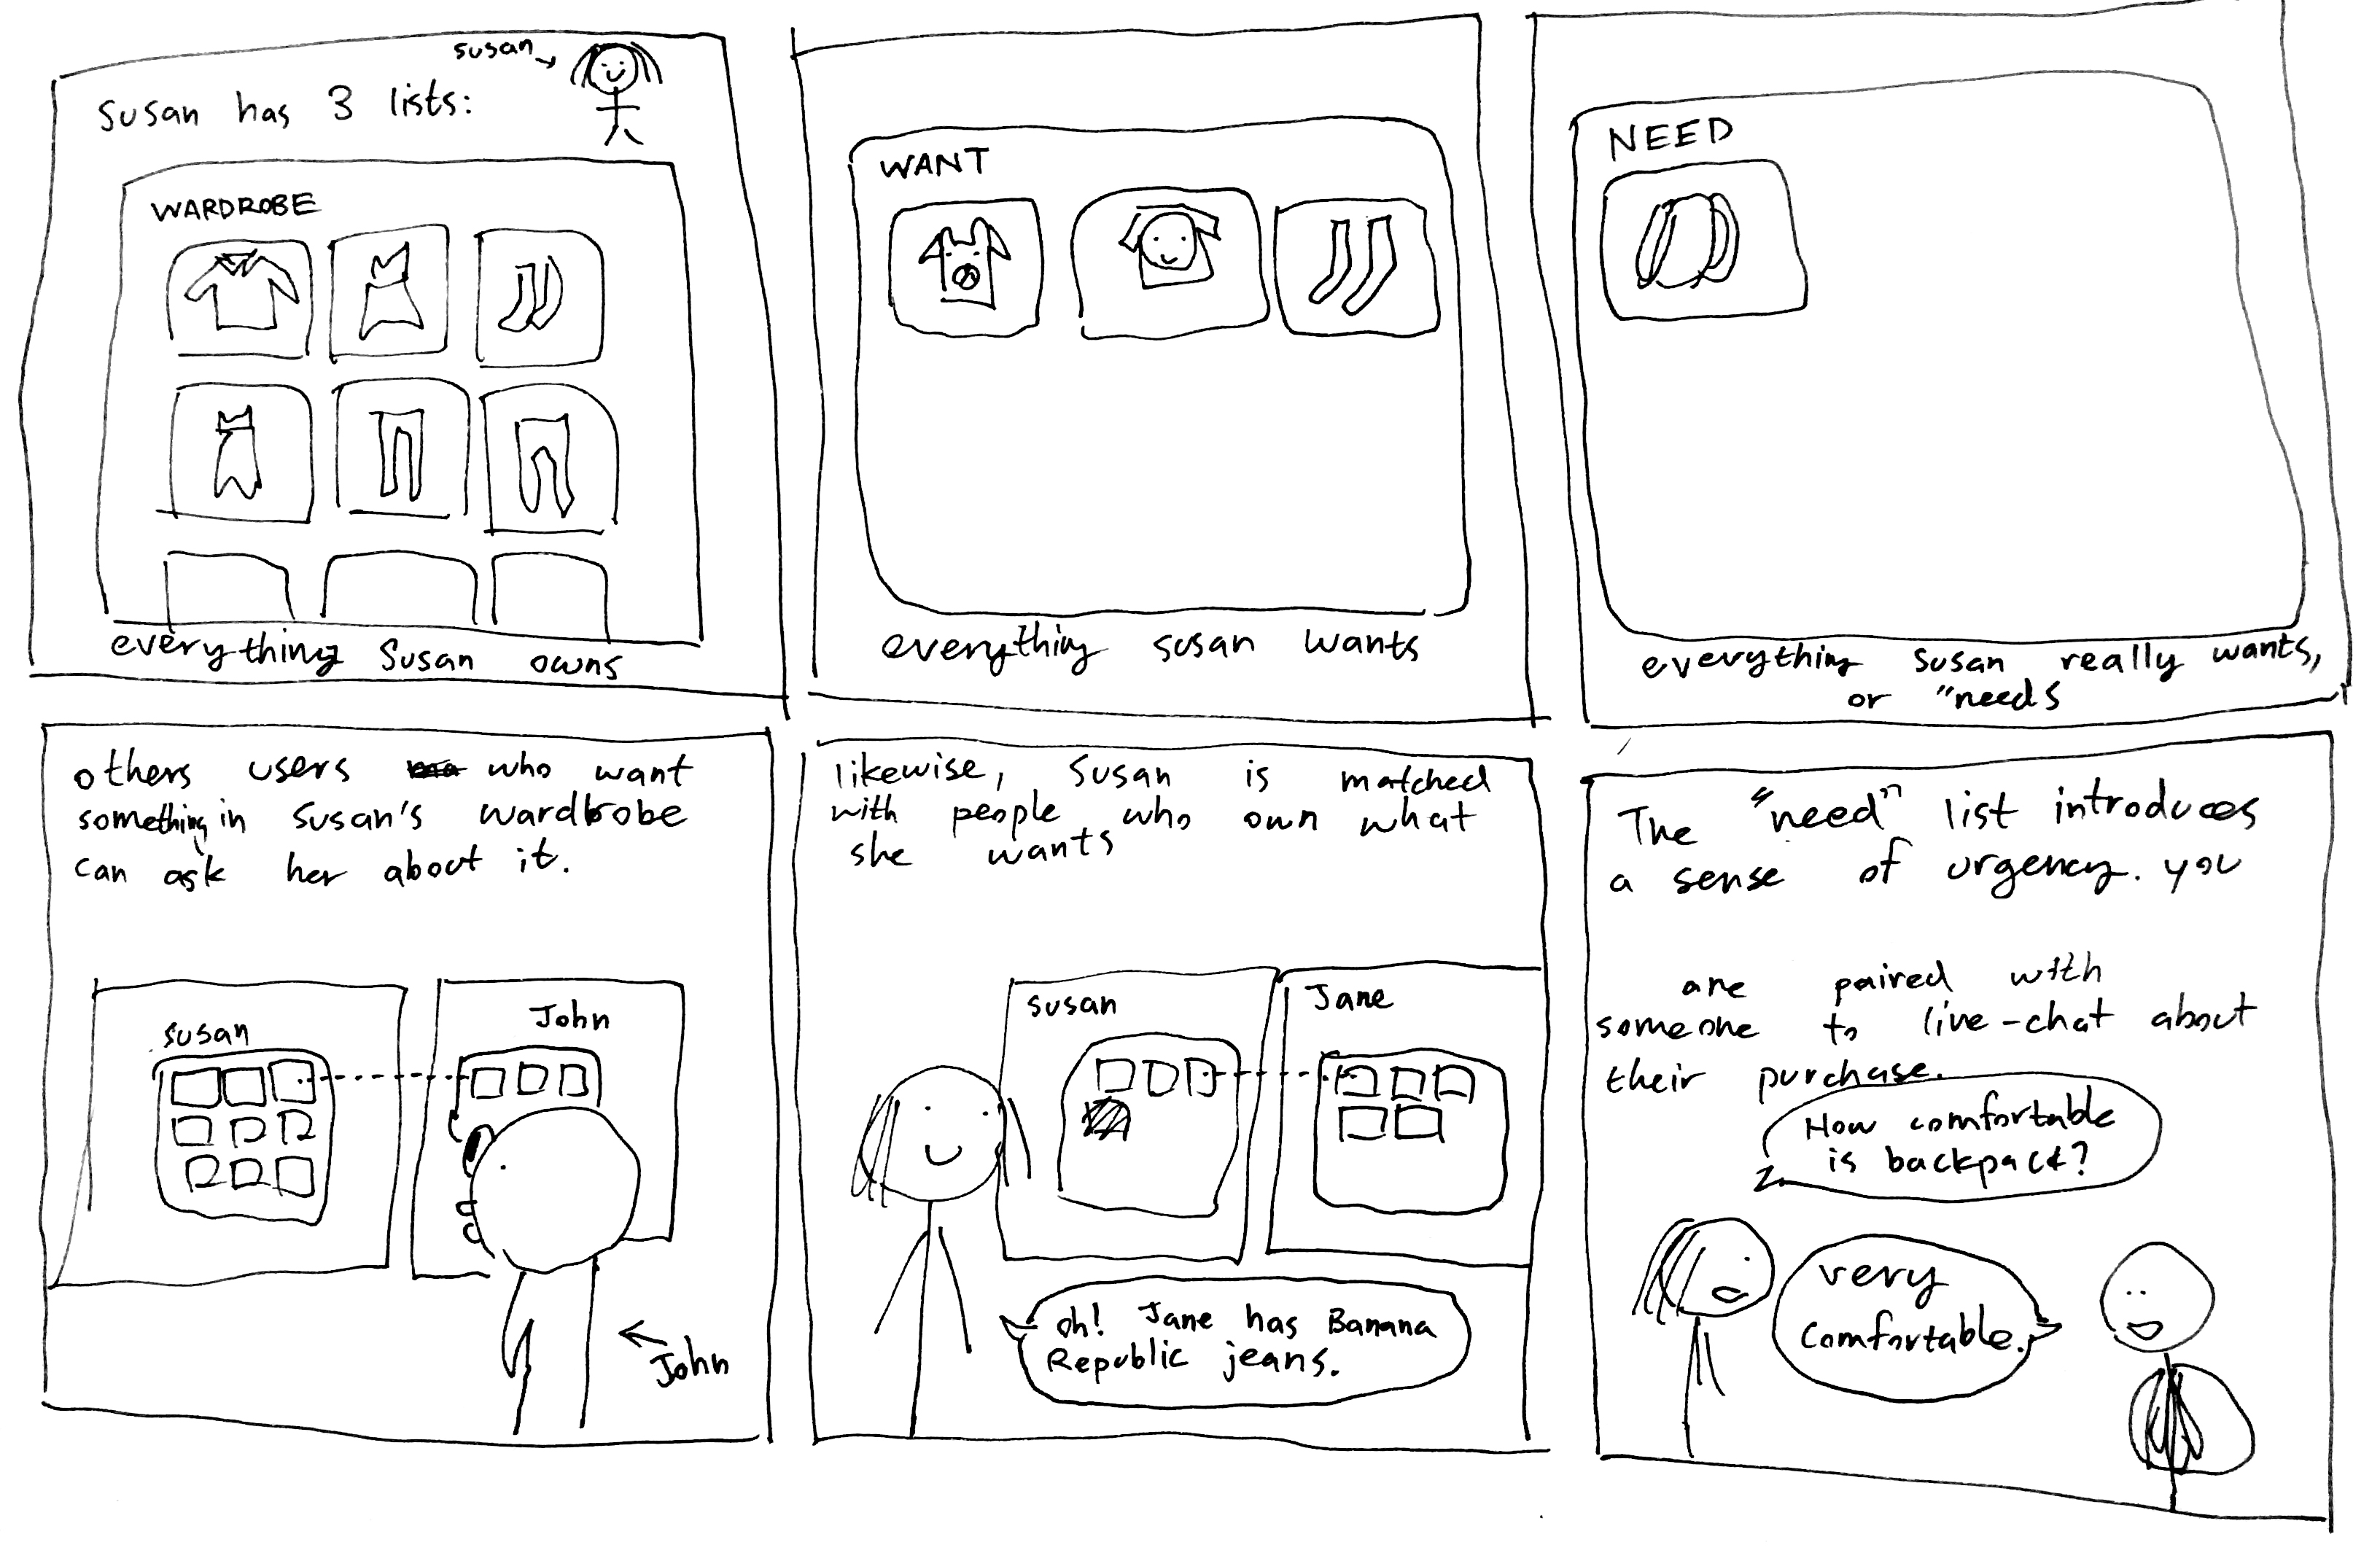 susan
Susan has 3 lists:
WARDROBE
everything Susan owns
WANT
everything susan wants
NEED
everything susan really wants,
or "needs
others users who want
something in Susan's wardbobe
can ask her about it.
susan
John
John
likewise, Susan is matched
with people who own what
she wants
susan
Jane
oh! Jane has Banana
Republic jeans.
The "need" list introduces
a sense of urgency. you
are paired with
someone to live-chat about
their purchase.
How comfortable
is backpack?
very
comfortable.